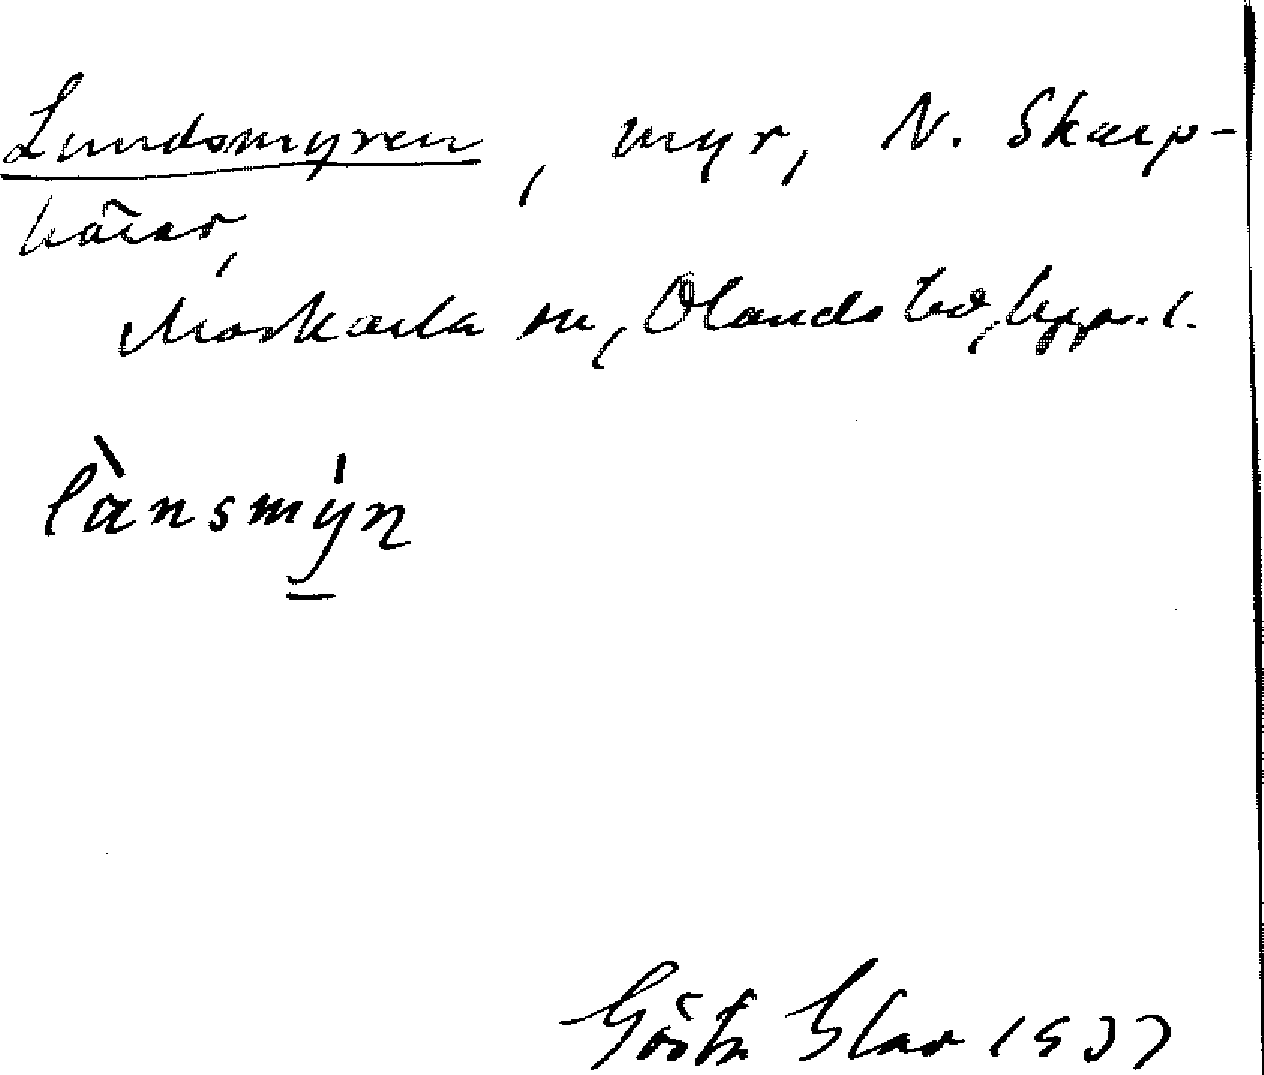 Lundsmyren, myr, N. Skarp-
håtar,
Morkarla sn, Olands hd, Upps. l.
lànsmýn
Gösta Elar 1937